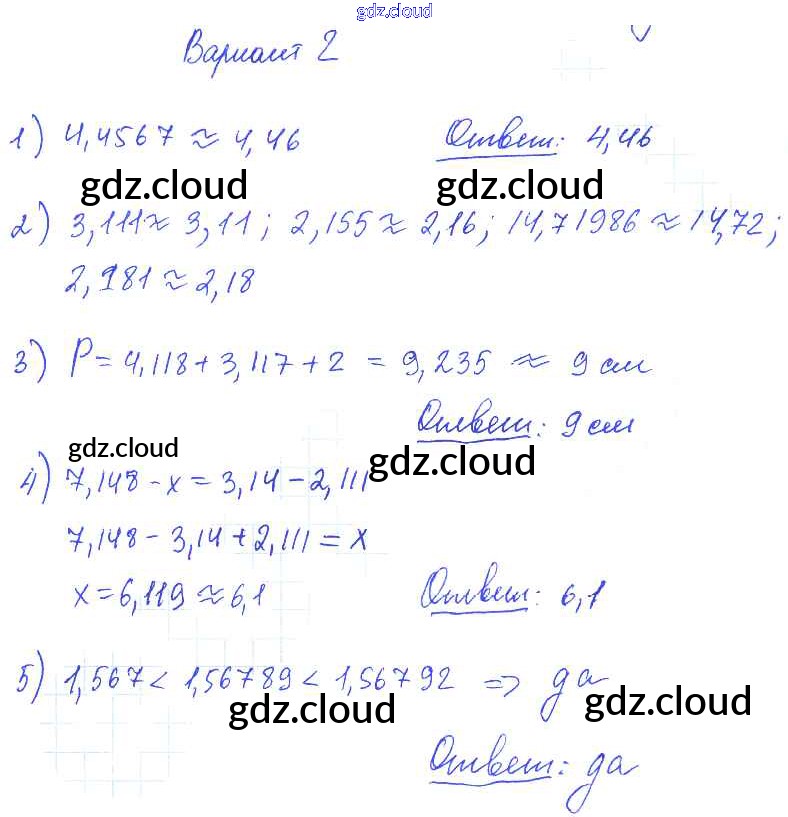 gdz.cloud
Вариант 2
1) 4,4567 ≈ 4,46 Ответ: 4,46
gdz.cloud gdz.cloud
2) 3,111 ≈ 3,11; 2,155 ≈ 2,16; 14,71986 ≈ 14,72;
2,181 ≈ 2,18
3) P = 4,118 + 3,117 + 2 = 9,235 ≈ 9 см
Ответ: 9 см
gdz.cloud gdz.cloud
4) 7,148 - x = 3,14 - 2,111
7,148 - 3,14 + 2,111 = x
x = 6,119 ≈ 6,1 Ответ: 6,1
5) 1,567 < 1,56789 < 1,56792 => да
gdz.cloud gdz.cloud
Ответ: да